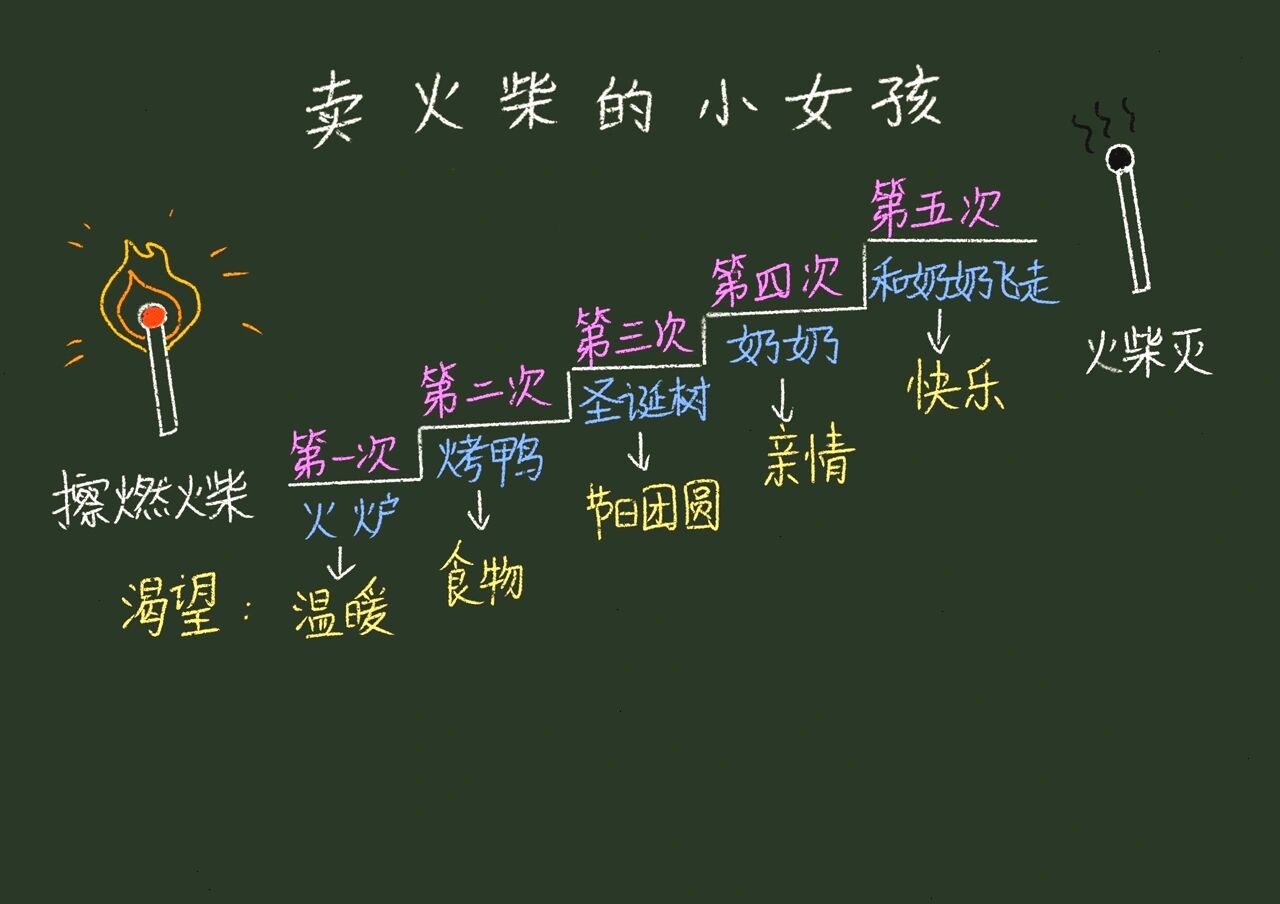 卖火柴的小女孩
第一次
火炉
温暖
第二次
烤鸭
食物
第三次
圣诞树
节日团圆
第四次
奶奶
亲情
第五次
和奶奶飞走
快乐
擦燃火柴
渴望：
火柴灭